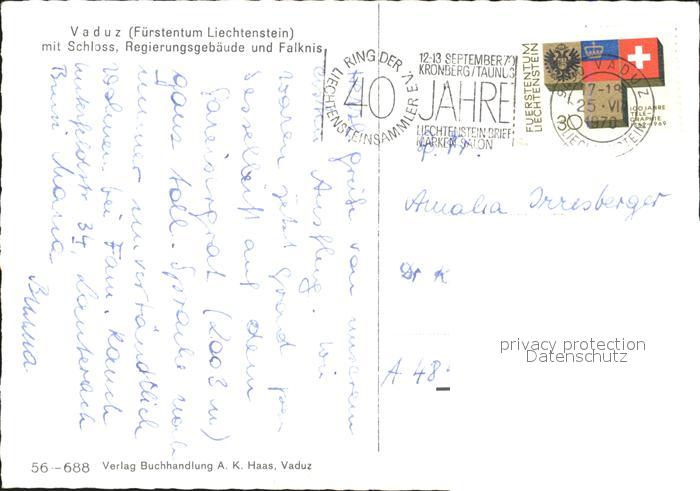 Vaduz (Fürstentum Liechtenstein)
mit Schloss, Regierungsgebäude und Falknis
RING DER LIECHTENSTEINSAMMLER E.V.
40 JAHRE
12-13 SEPTEMBER 70
KRONBERG/TAUNUS
LIECHTENSTEIN BRIEF-
MARKEN SALON
FÜRSTENTUM
LIECHTENSTEIN
30
100 JAHRE
TELE-
GRAPHIE
1869-1969
VADUZ
17-18
25. VII
1970
LIECHTENSTEIN
Grüße von unserem
ersten Ausflug. Wir
waren jetzt grad per
Sessellift auf dem
Sareisergrat (2003 m)
ganz toll. Sprache noch
immer unverständlich
Wohnen bei Fam. Rauch
34, Lauterach
Bussi Mama
Amalia Irresberger
Dr K
A 48
privacy protection
Datenschutz
56--688 Verlag Buchhandlung A. K. Haas, Vaduz